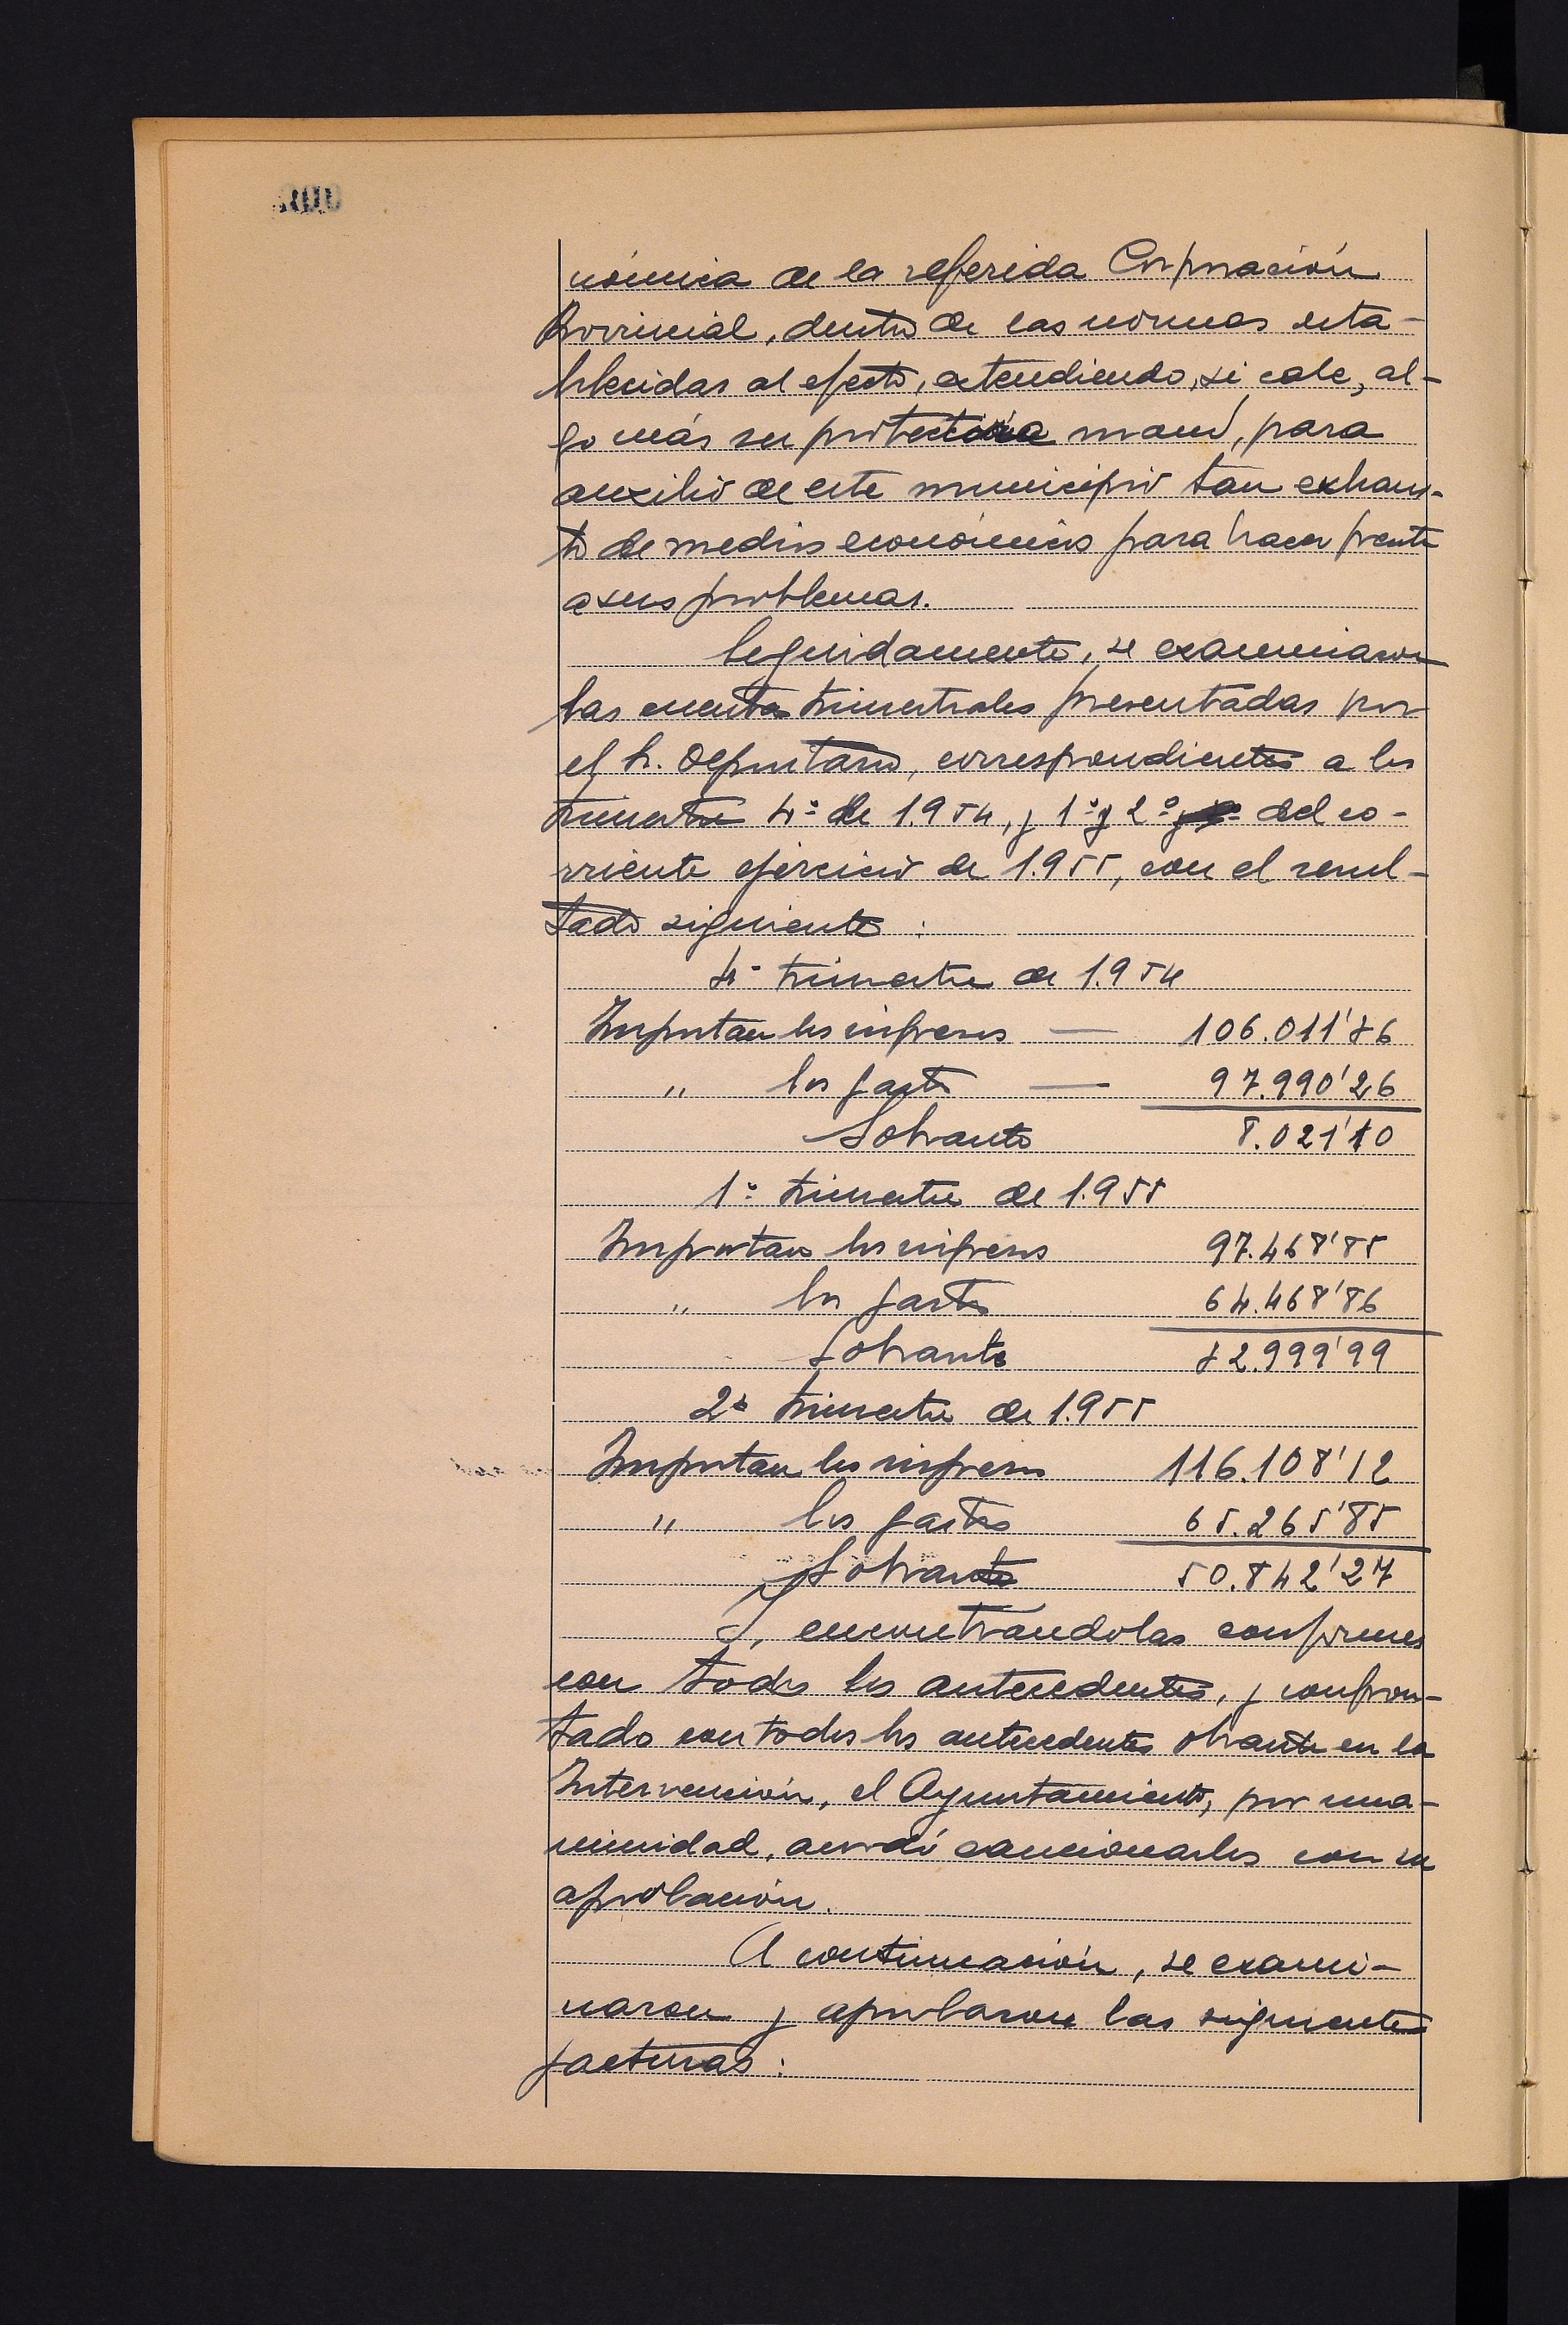 nómica de la referida Corporación
Provincial, dentro de las normas esta-
blecidas al efecto, extendiendo, si cabe, al-
go más su protectora mano, para
auxilio de este municipio tan exhaus-
to de medios económicos para hacer frente
a sus problemas.
Seguidamente, se examinaron
las cuentas trimestrales presentadas por
el Sr. Depositario, correspondientes a los
trimestre 4º de 1.954, y 1º y 2º del co-
rriente ejercicio de 1.955, con el resul-
tado siguiente :
4º trimestre de 1.954
Importan los ingresos — 106.011'36
" los gastos — 97.990'26
Sobrante 8.021'10
1º trimestre de 1.955
Importan los ingresos 97.468'85
" los gastos 64.468'86
Sobrante 32.999'99
2º trimestre de 1.955
Importan los ingresos 116.108'12
" los gastos 65.265'85
Sobrante 50.842'27
Y, encontrándolas conformes
con todos los antecedentes, y confron-
tado con todos los antecedentes obrante en la
Intervención, el Ayuntamiento, por una-
nimidad, acordó sancionarlos con su
aprobación.
A continuación, se exami-
naron y aprobaron las siguientes
facturas :